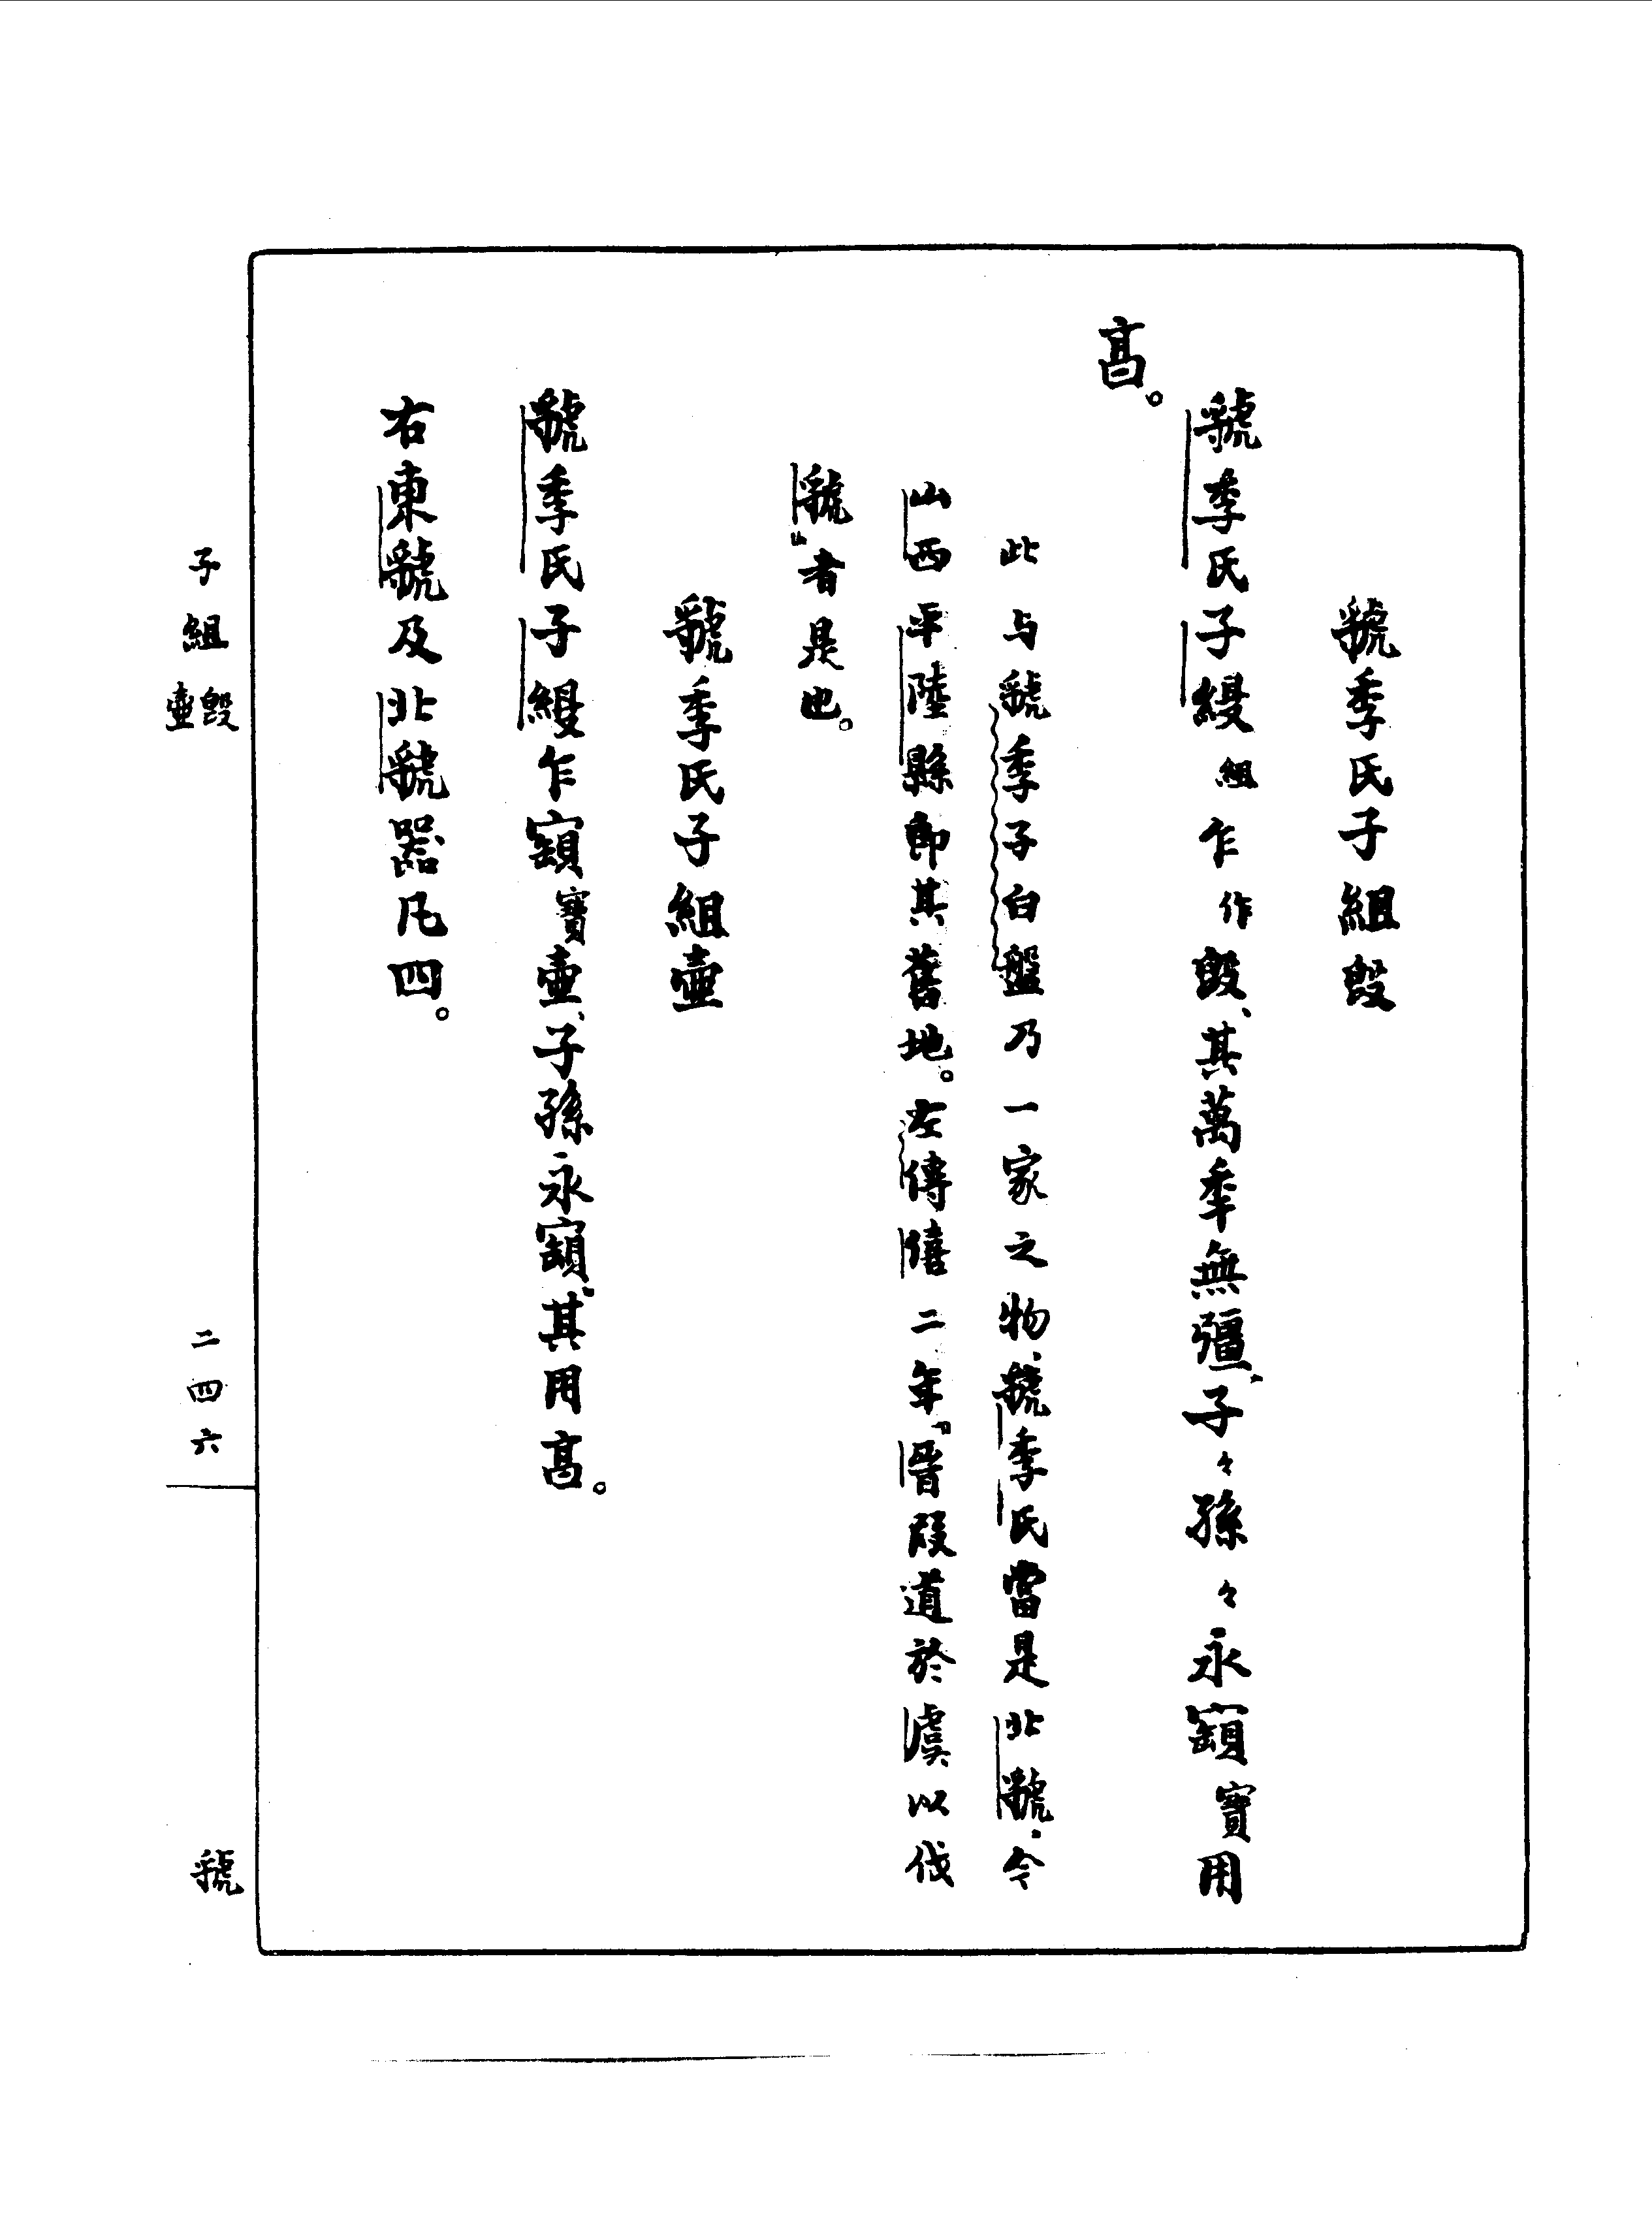 虢季氏子組𣪘
虢季氏子縵組乍作𣪘、其萬年無彊、子々孫々永寶用
亯。
此与虢季子白盤乃一家之物、虢季氏當是北虢、今
山西平陸縣即其舊地。左傳僖二年、「晉叚道於虞以伐
虢」者是也。
虢季氏子組壺
虢季氏子縵乍寶壺、子孫永、其用亯。
右東虢及北虢器凡四。
子組𣪘壺
二四六
虢